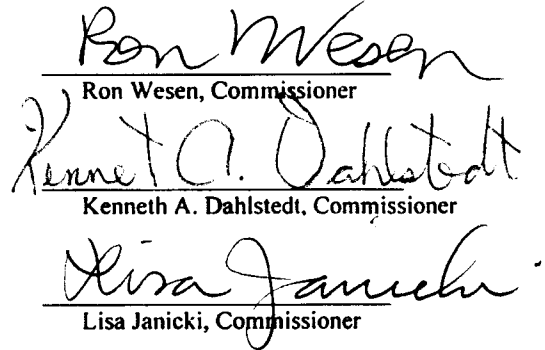 Ron Wesen
Ron Wesen, Commissioner
Kennet A. Dahlstedt
Kenneth A. Dahlstedt, Commissioner
Lisa Janicki
Lisa Janicki, Commissioner